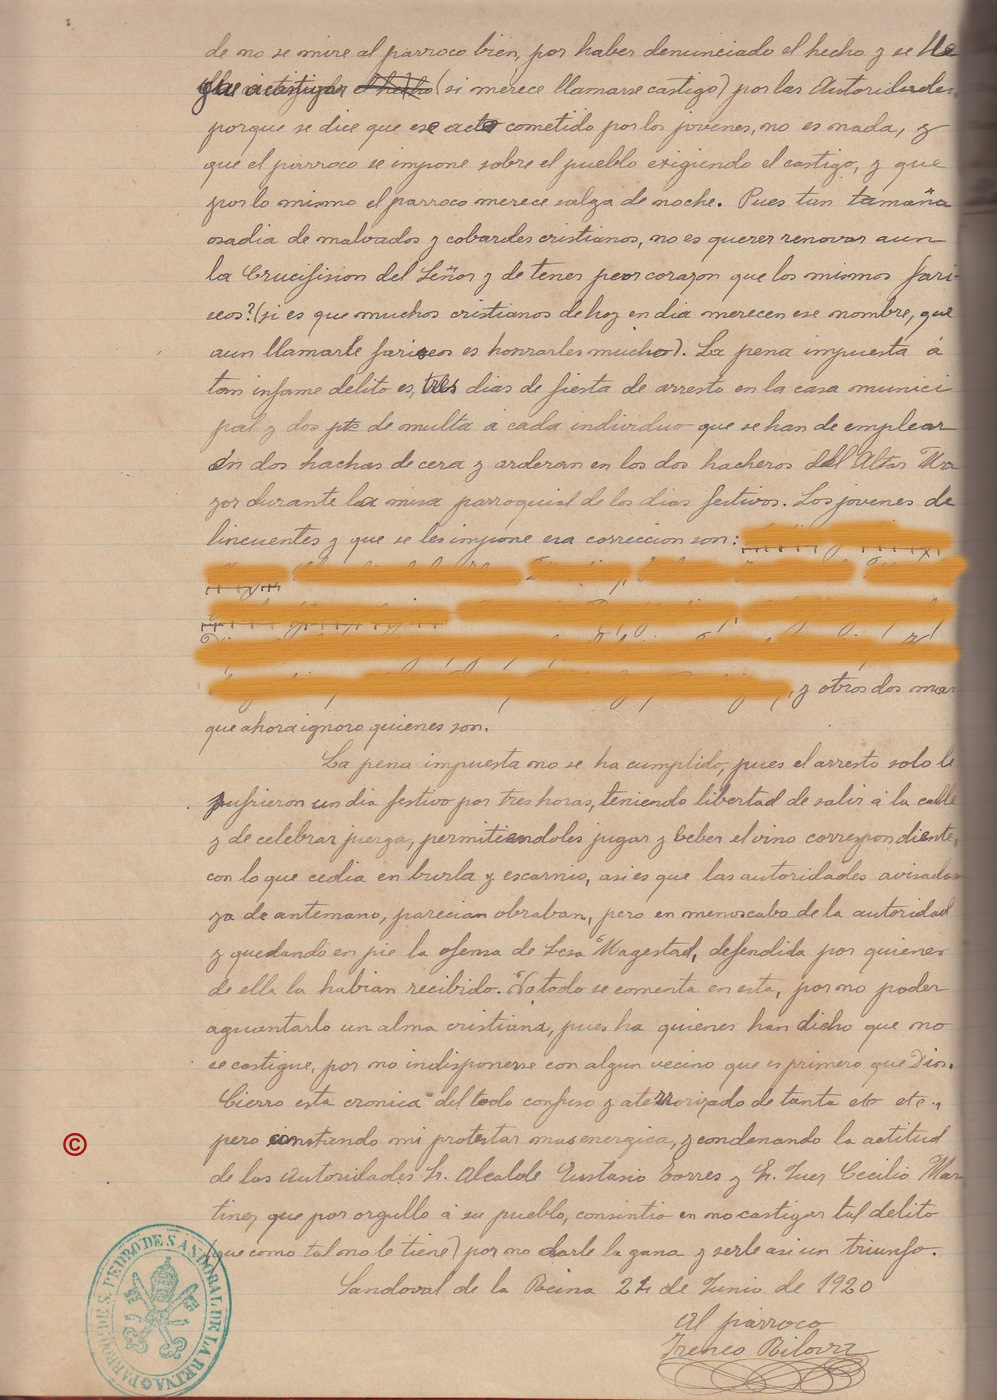 de no se mire al parroco bien, por haber denunciado el hecho y se lle
gue a castigar el hecho (si merece llamarse castigo) por las Autoridades,
porque se dice que ese acto cometido por los jovenes, no es nada, y
que el parroco se impone sobre el pueblo exigiendo el castigo, y que
por lo mismo el parroco merece salga de noche. Pues tan tamaña
osadia de malvados y cobardes cristianos, no es querer renovar aun
la Crucifision del Señor y de tener peor corazon que los mismos fari-
seos? (si es que muchos cristianos de hoy en dia merecen ese nombre, que
aun llamarle fariseos es honrarles mucho). La pena impuesta á
tan infame delito es, tres dias de fiesta de arresto en la casa munici
pal y dos pts de multa á cada individuo que se han de emplear
en dos hachas de cera y arderan en los dos hacheros del Altar Ma
yor durante la misa parroquial de los dias festivos. Los jovenes de
lincuentes y que se les impone esa correccion son:
, y otros dos mas
que ahora ignoro quienes son.
La pena impuesta no se ha cumplido, pues el arresto solo le
sufrieron un dia festivo por tres horas, teniendo libertad de salir á la calle
y de celebrar juerga, permitiendoles jugar y beber el vino correspondiente,
con lo que cedia en burla y escarnio, asi es que las autoridades avisadas
ya de antemano, parecian obraban, pero en menoscabo de la autoridad
y quedando en pie la ofensa de Lesa Magestad, defendida por quienes
de ella la habian recibido. todo se comenta en esta, por no poder
aguantarlo un alma cristiana, pues ha quienes han dicho que no
se castigue, por no indisponerse con algun vecino que es primero que Dios.
Cierro esta cronica del todo confuso y aterrorizado de tanta etc etc.,
pero constando mi protestar mas energica, y condenando la actitud
de las autoridades Sr. Alcalde Eustasio Torres y Sr. Juez Cecilio Mar
tinez que por orgullo á su pueblo, consintio en no castigar tal delito
(que como tal no le tiene) por no darle la gana y serle asi un triunfo.
Sandoval de la Reina 21 de Junio de 1920
El párroco
Ireneo Rilova
©
PARROQ. DE S. PEDRO DE SANDOVAL DE LA REINA